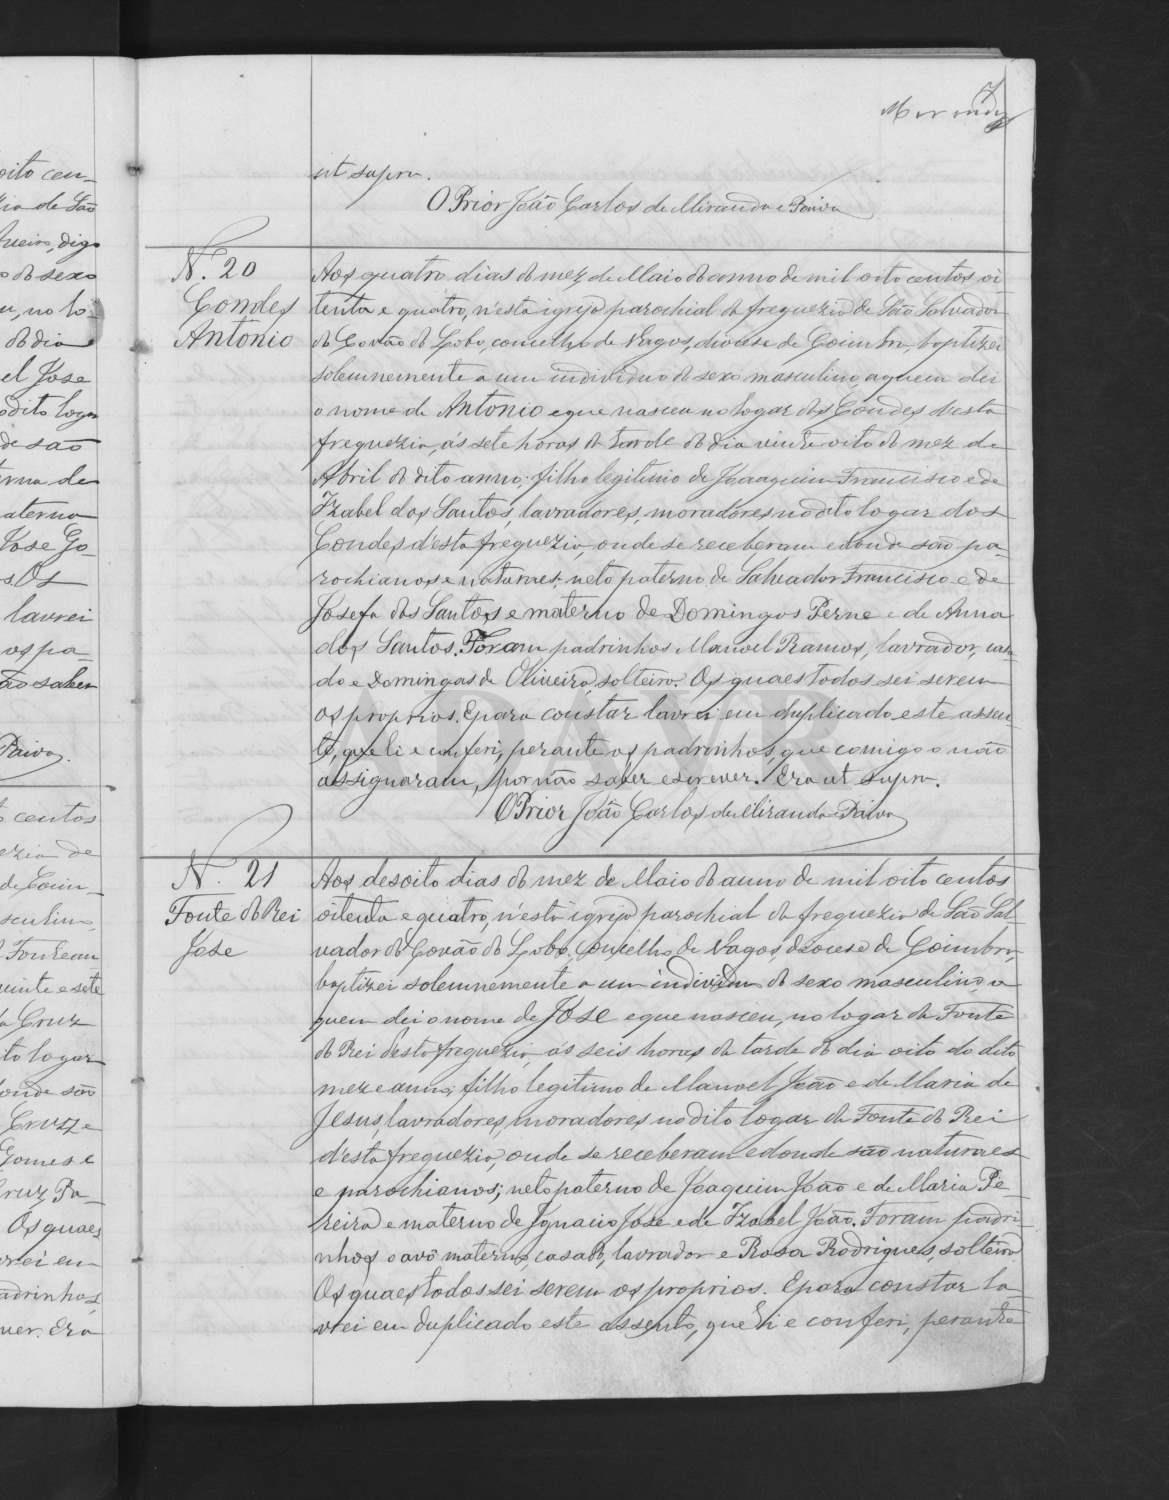 7
Miranda
ut supra.
O Prior João Carlos de Miranda e Paiva
N. 20
Condes
Antonio
Aos quatro dias do mez de Maio do anno de mil oito centos oi-
tenta e quatro, n'esta igreja parochial da freguezia de São Salvador
do Covão do Lobo, concelho de Vagos, diocese de Coimbra, baptizei
solemnemente a um individuo do sexo masculino, a quem dei
o nome de Antonio e que nasceu no logar dos Condes desta
freguezia, ás sete horas da tarde do dia vinte oito do mez de
Abril do dito anno; filho legitimo de Joaquim Francisco e de
Izabel dos Santos, lavradores, moradores no dito logar dos
Condes d'esta freguezia, onde se receberam e donde são pa-
rochianos e naturaes; neto paterno de Salvador Francisco e de
Josefa dos Santos e materno de Domingos Perne e de Anna
dos Santos. Foram padrinhos Manoel Ramos, lavrador, casa-
do e Domingas de Oliveira, solteira. Os quaes todos sei serem
os proprios. E para constar lavrei em duplicado este assen-
to, que li e conferi, perante os padrinhos, que comigo o não
assignaram, por não saber escrever. Era ut supra.
O Prior João Carlos de Miranda e Paiva
N. 21
Fonte do Rei
Jose
Aos desoito dias do mez de Maio do anno de mil oito centos
oitenta e quatro, n'esta igreja parochial da freguezia de São Sal-
vador do Covão do Lobo, concelho de Vagos, diocese de Coimbra,
baptizei solemnemente a um individuo do sexo masculino, a
quem dei o nome de Jose e que nasceu, no logar da Fonte
do Rei desta freguezia, ás seis horas da tarde do dia oito do dito
mez e anno; filho legitimo de Manoel João e de Maria de
Jesus, lavradores, moradores no dito logar da Fonte do Rei
d'esta freguezia, onde se receberam e donde são naturaes
e parochianos; neto paterno de Joaquim João e de Maria Pe-
reira e materno de Ignacio Jose e de Izabel João. Foram padri-
nhos o avô materno, casado, lavrador e Rosa Rodrigues, solteira.
Os quaes todos sei serem os proprios. E para constar la-
vrei em duplicado este assento, que li e conferi, perante